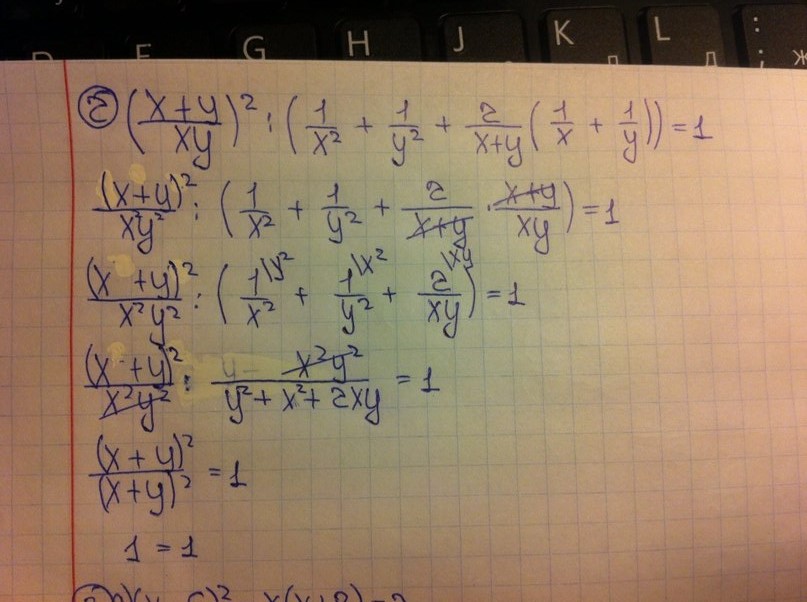 D F G H J K L : ;
Д Ж
г) ((x+y)/(xy))² : (1/x² + 1/y² + 2/(x+y) (1/x + 1/y)) = 1
(x+y)²/(x²y²) : (1/x² + 1/y² + 2/(x+y) · (x+y)/(xy)) = 1
(x+y)²/(x²y²) : (1\y²/x² + 1\x²/y² + 2\xy/(xy)) = 1
(x+y)²/(x²y²) · x²y²/(y²+x²+2xy) = 1
(x+y)²/(x+y)² = 1
1 = 1